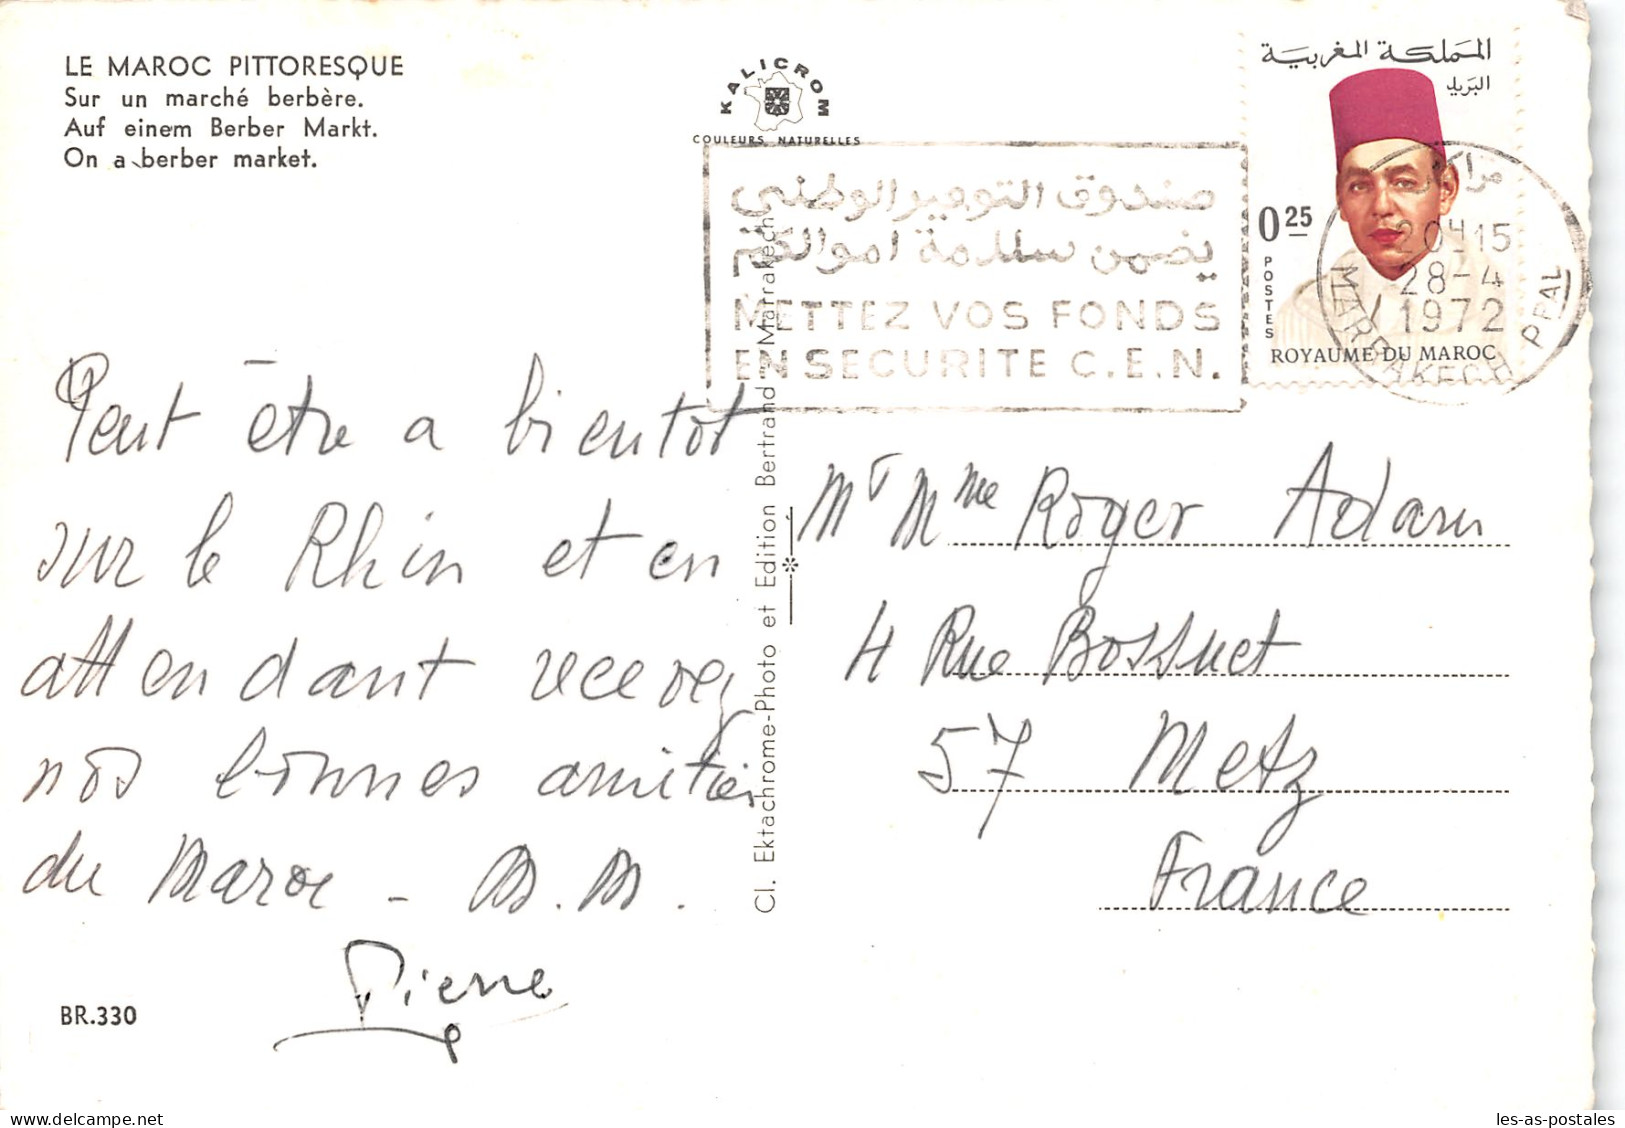 LE MAROC PITTORESQUE
Sur un marché berbère.
Auf einem Berber Markt.
On a berber market.
KALICROM
COULEURS NATURELLES
صندوق التوفير الوطني
يضمن سلامة اموالكم
METTEZ VOS FONDS
EN SECURITE C.E.N.
المملكة المغربية
البريد
0 25
POSTES
ROYAUME DU MAROC
مراكش
20H15
28-4
1972
MARRAKECH PPAL
Peut être a bientot
sur le Rhin et en
attendant recevez
nos bonnes amitiés
du Maroc -
Pierre
BR.330
Cl. Ektachrome-Photo et Edition Bertrand Marrakech
Mr Mme Roger Adam
4 Rue Bossuet
57 Metz
France
delcampe.net
les-as-postales